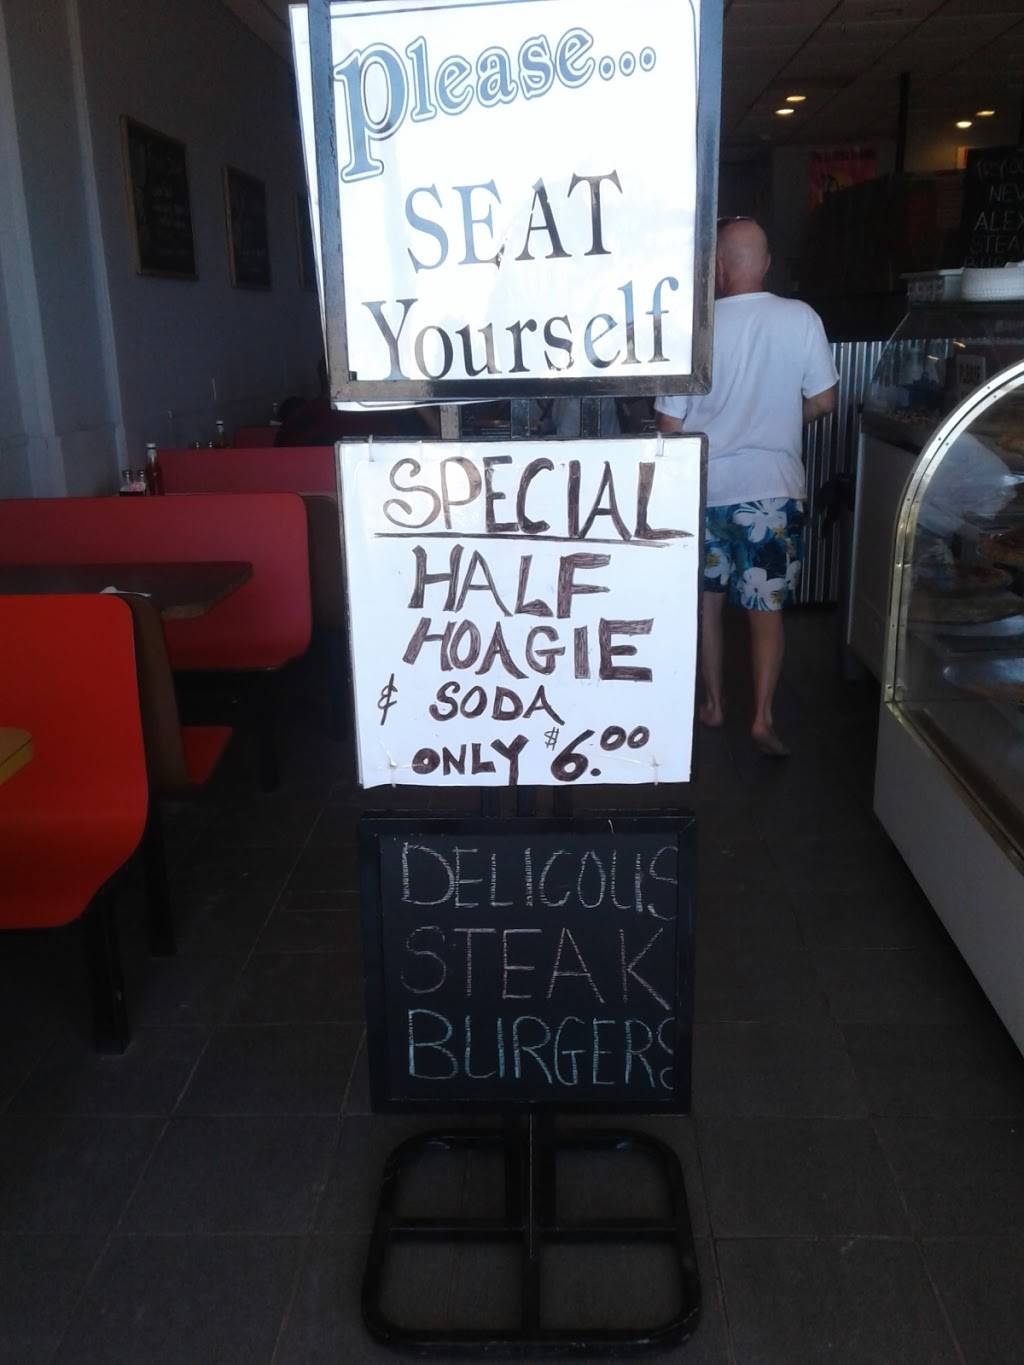 Please...
SEAT
Yourself
SPECIAL
HALF
HOAGIE
& SODA
ONLY $6.00
DELICOUS
STEAK
BURGERS
NEW
ALEX
STEAK